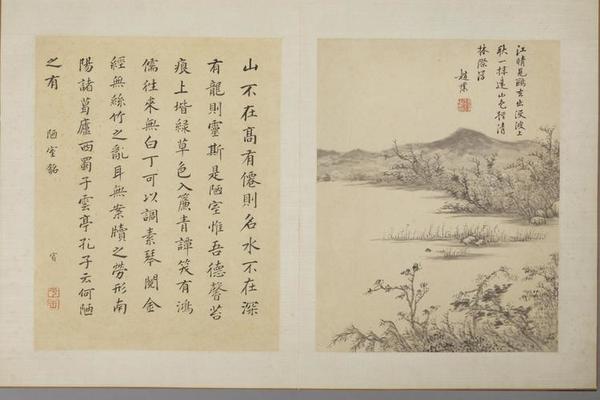 江晴見鷗去出沒波上
秋一抹遠山色輕清
林際浮
趙
山不在高有僊則名水不在深
有龍則靈斯是陋室惟吾德馨苔
痕上堦綠草色入簾青譚笑有鴻
儒往來無白丁可以調素琴閱金
經無絲竹之亂耳無案牘之勞形南
陽諸葛廬西蜀子雲亭孔子云何陋
之有 陋室銘